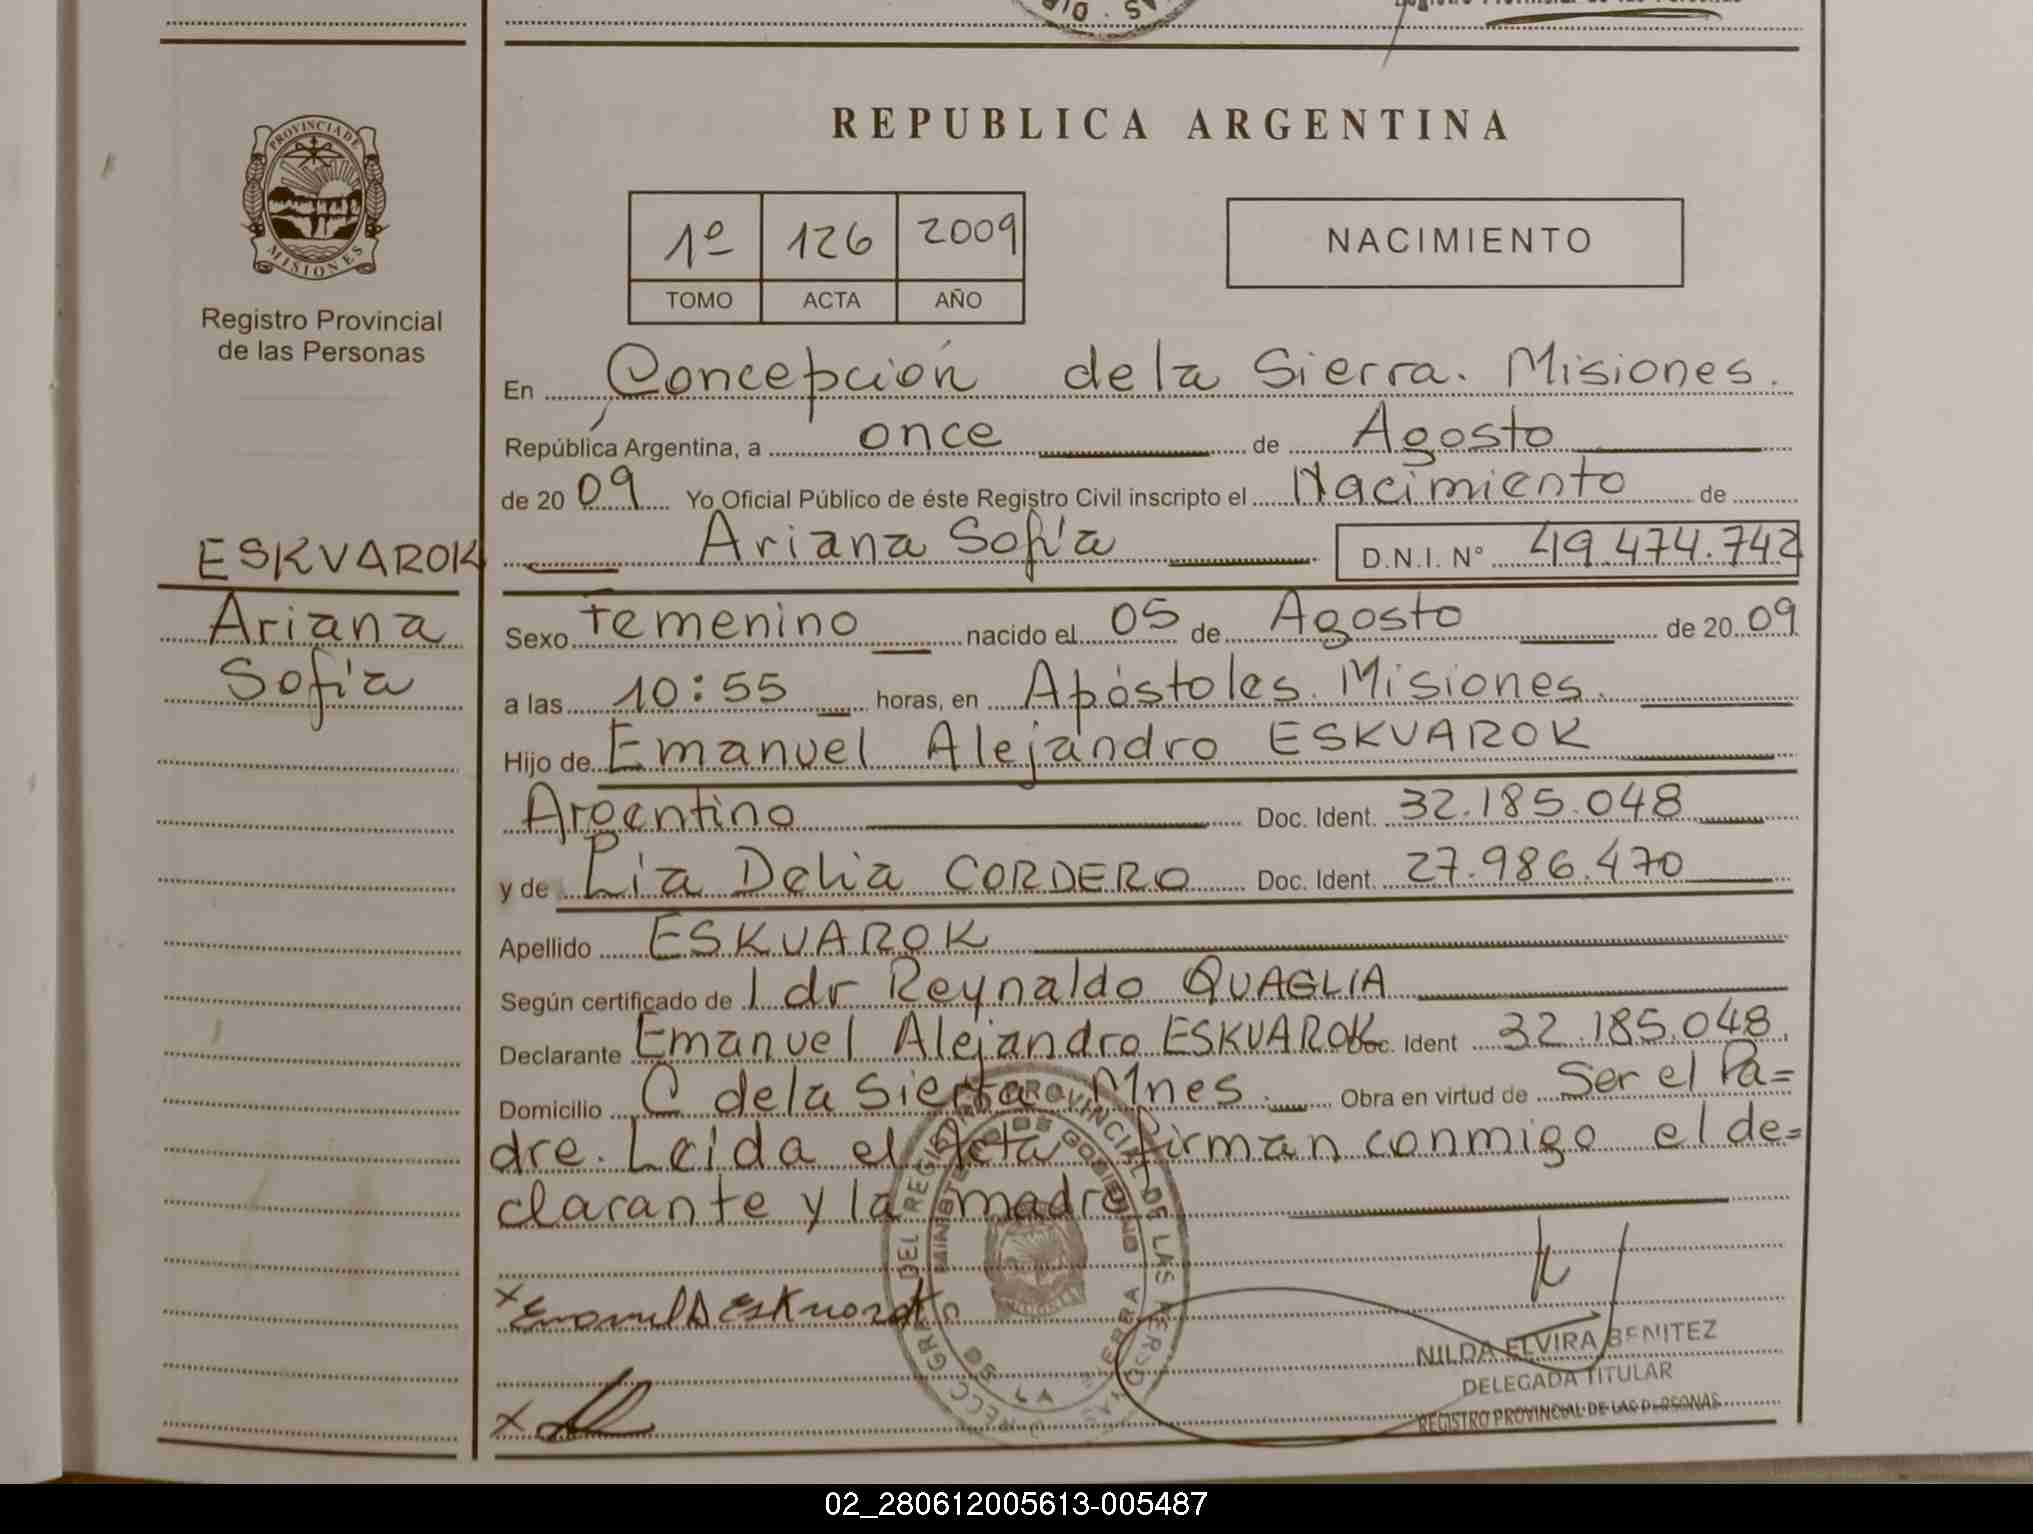 REPUBLICA ARGENTINA
PROVINCIA DE
MISIONES
Registro Provincial
de las Personas
1º 126 2009
TOMO ACTA AÑO
NACIMIENTO
En Concepción de la Sierra. Misiones.
República Argentina, a once de Agosto
de 20 09 Yo Oficial Público de éste Registro Civil inscripto el Nacimiento de
ESKVAROK
Ariana
Sofía
Ariana Sofía D.N.I. Nº 49.474.742
Sexo Femenino nacido el 05 de Agosto de 20 09
a las 10:55 horas, en Apóstoles. Misiones.
Hijo de Emanuel Alejandro ESKVAROK
Argentino Doc. Ident. 32.185.048
y de Lia Delia CORDERO Doc. Ident. 27.986.470
Apellido ESKVAROK
Según certificado de l dr Reynaldo QUAGLIA
Declarante Emanuel Alejandro ESKVAROK Doc. Ident 32.185.048.
Domicilio C de la Sierra Mnes. Obra en virtud de Ser el Pa=
dre. Leida el Acta firman conmigo el de=
clarante y la madre
DEL REGISTRO PROVINCIAL DE LAS PERSONAS
MINISTERIO DE GOBIERNO
NILDA ELVIRA BENITEZ
DELEGADA TITULAR
REGISTRO PROVINCIAL DE LAS PERSONAS
02_280612005613-005487